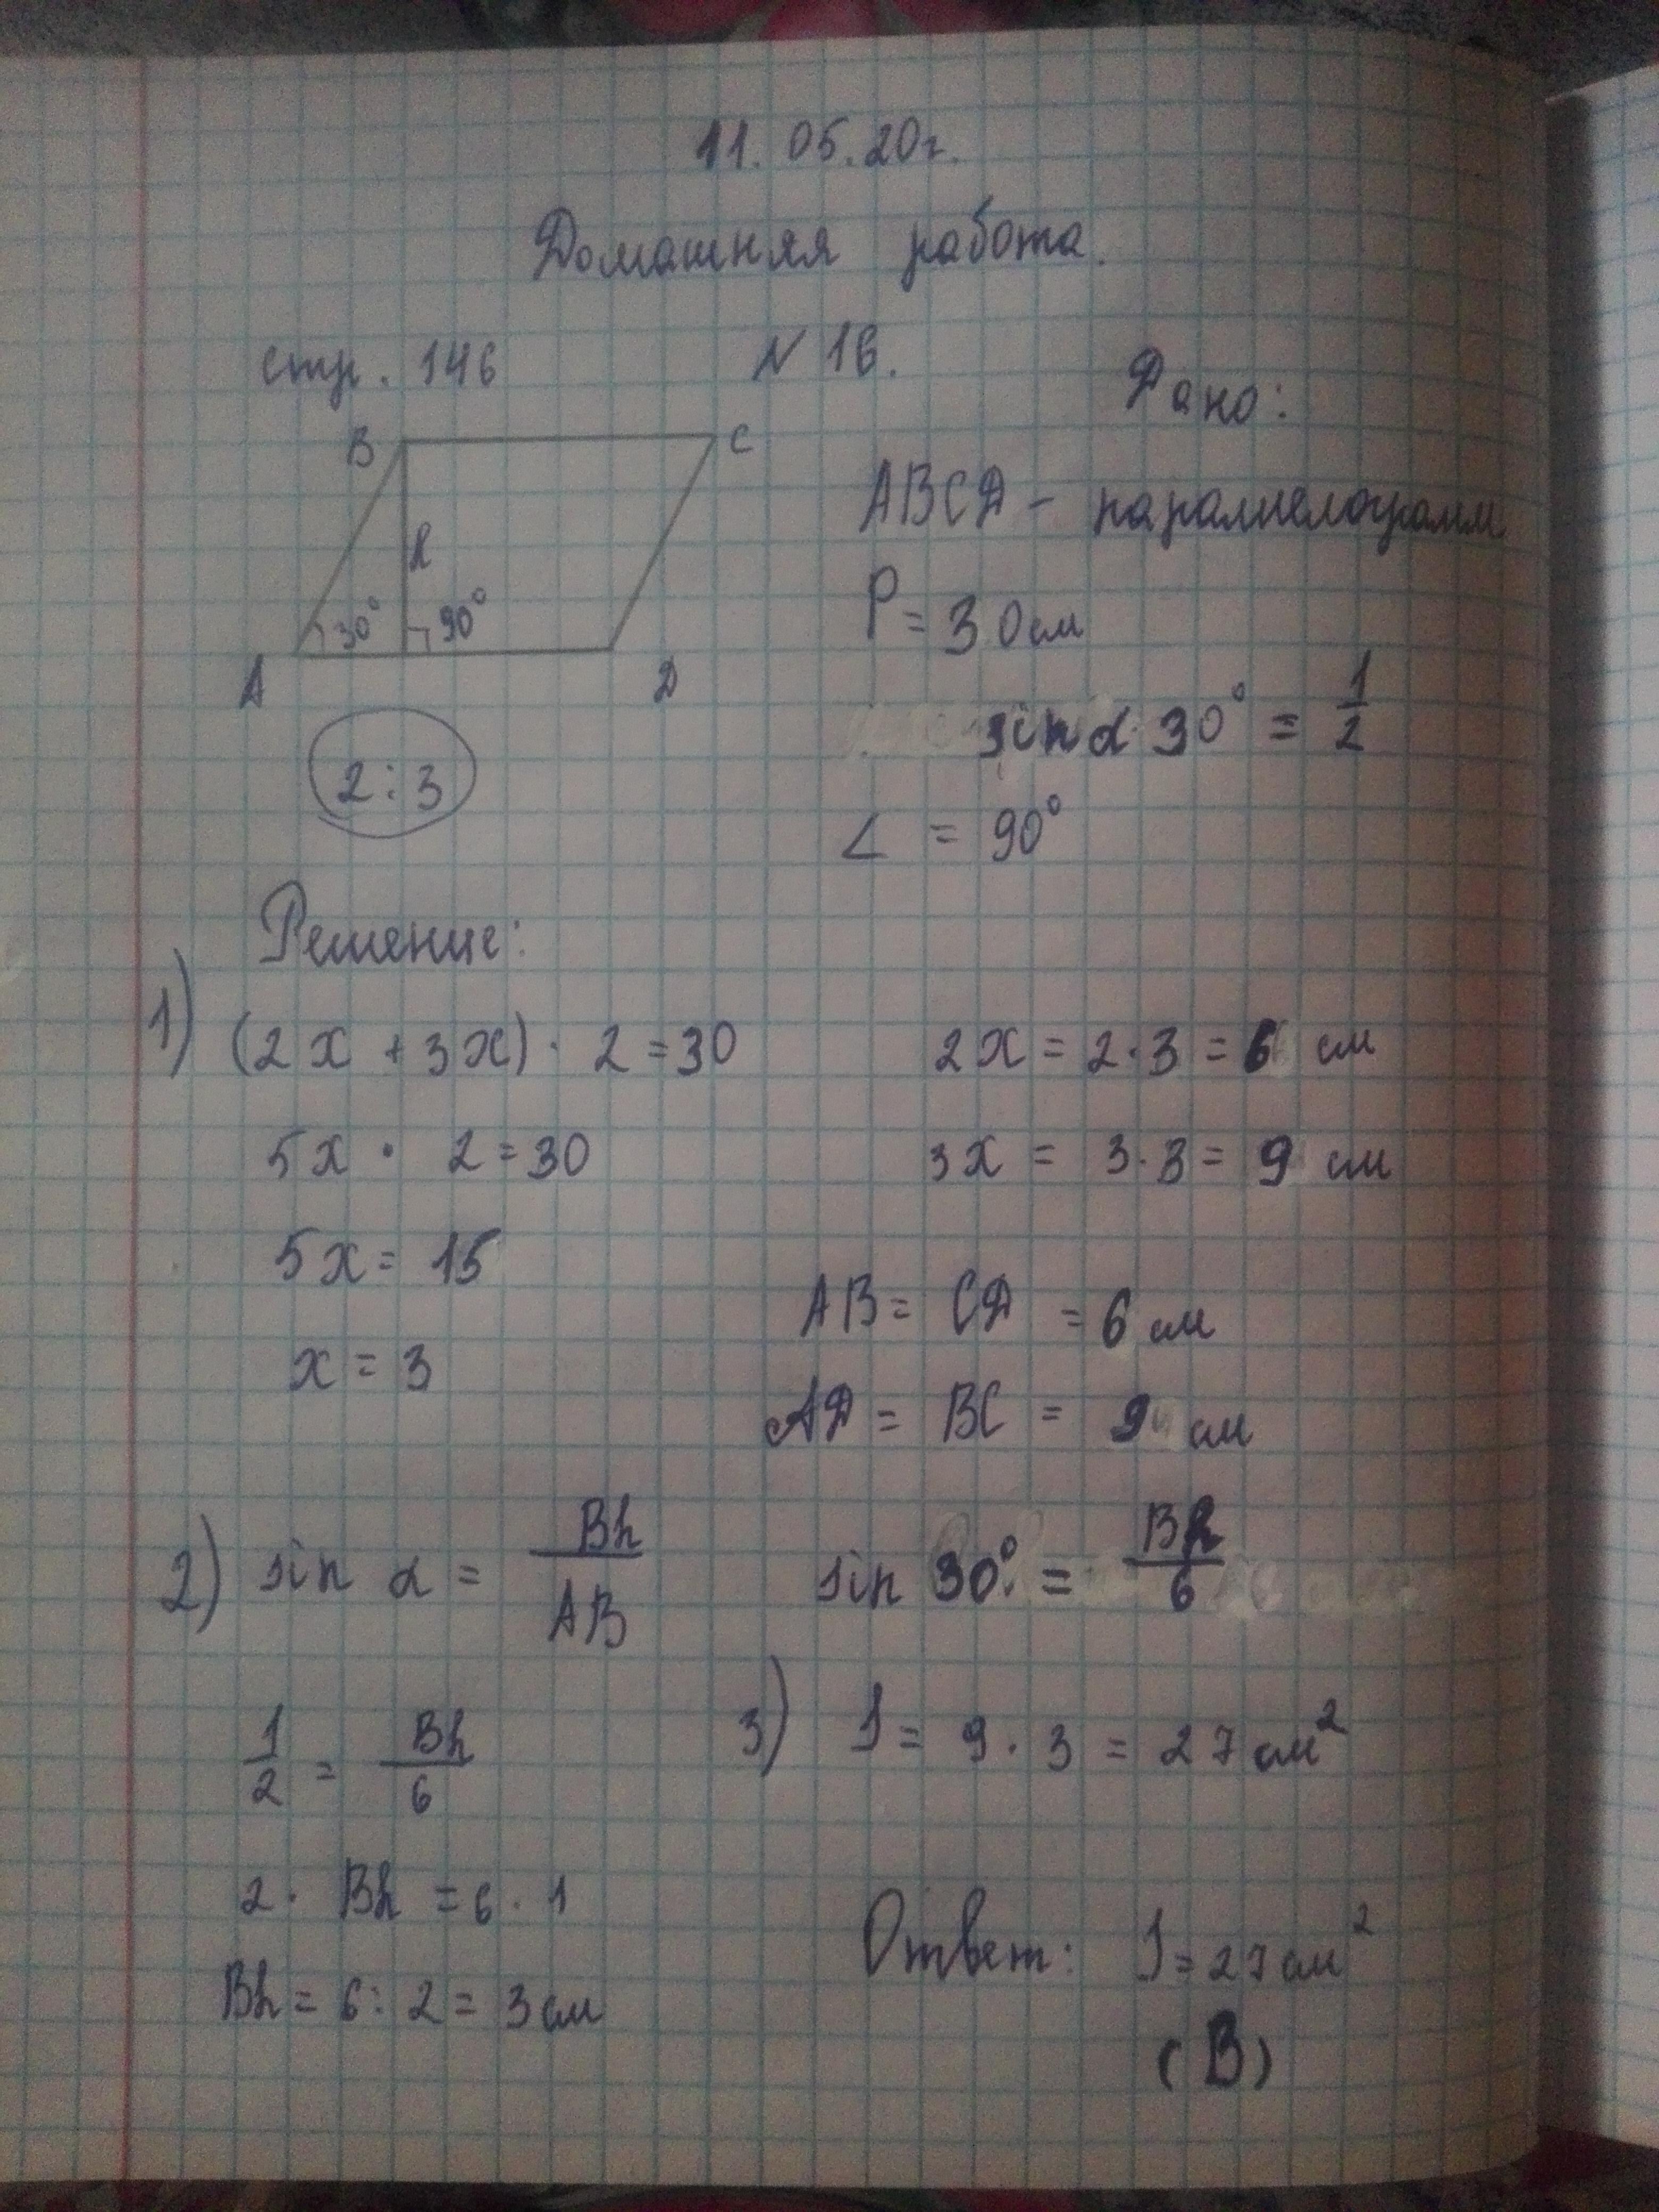 11. 05. 20г.
Домашняя работа.
стр. 146 N 16.
Дано:
B C
h
30° 90°
A D
2:3
ABCD - параллелограмм
P = 30 см
sin α 30° = 1/2
∠ = 90°
Решение:
1) (2x + 3x) · 2 = 30
5x · 2 = 30
5x = 15
x = 3
2x = 2·3 = 6 см
3x = 3·3 = 9 см
AB = CD = 6 см
AD = BC = 9 см
2) sin α = Bh/AB sin 30° = Bh/6
1/2 = Bh/6
2 · Bh = 6 · 1
Bh = 6 : 2 = 3 см
3) S = 9 · 3 = 27 см²
Ответ: S = 27 см²
(B)